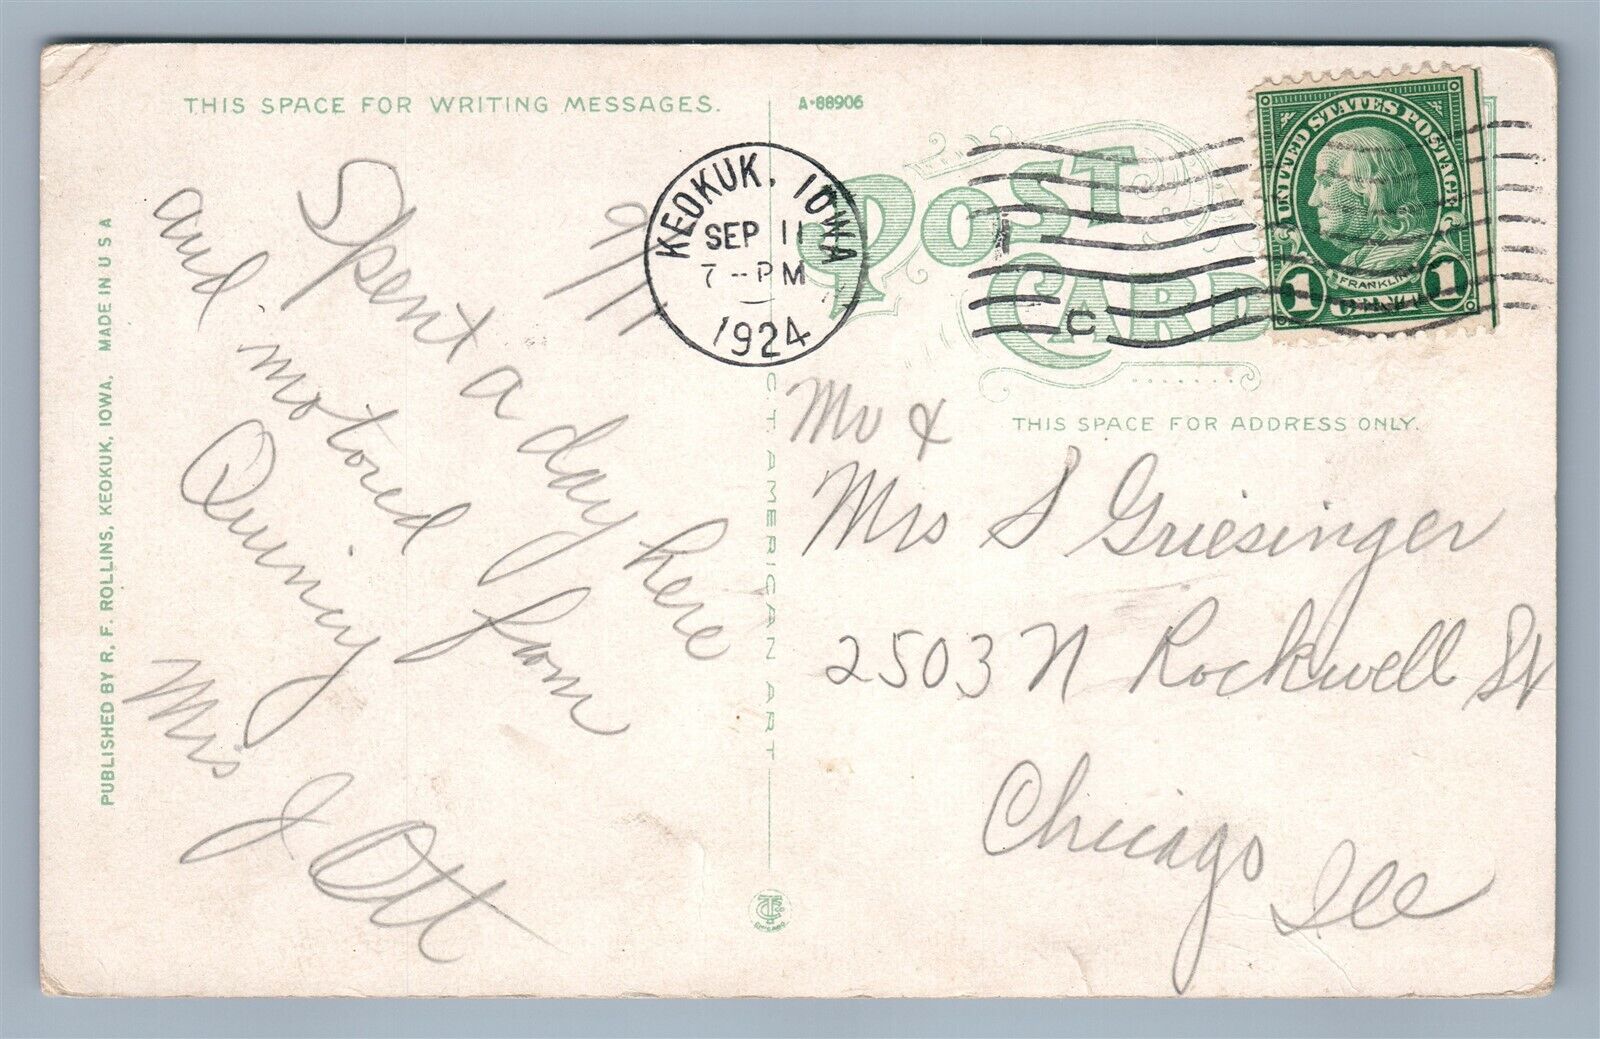 THIS SPACE FOR WRITING MESSAGES.
A-88906
POST
CARD
KEOKUK, IOWA
SEP 11
7-PM
1924
C
UNITED STATES POSTAGE
FRANKLIN
1 CENT 1
THIS SPACE FOR ADDRESS ONLY.
9/11
Spent a day here
and motored from
Quincy
Mrs J Ott
Mr &
Mrs S Griesinger
2503 N Rockwell St
Chicago
Ill
PUBLISHED BY R. F. ROLLINS, KEOKUK, IOWA. MADE IN U S A
C. T. AMERICAN ART